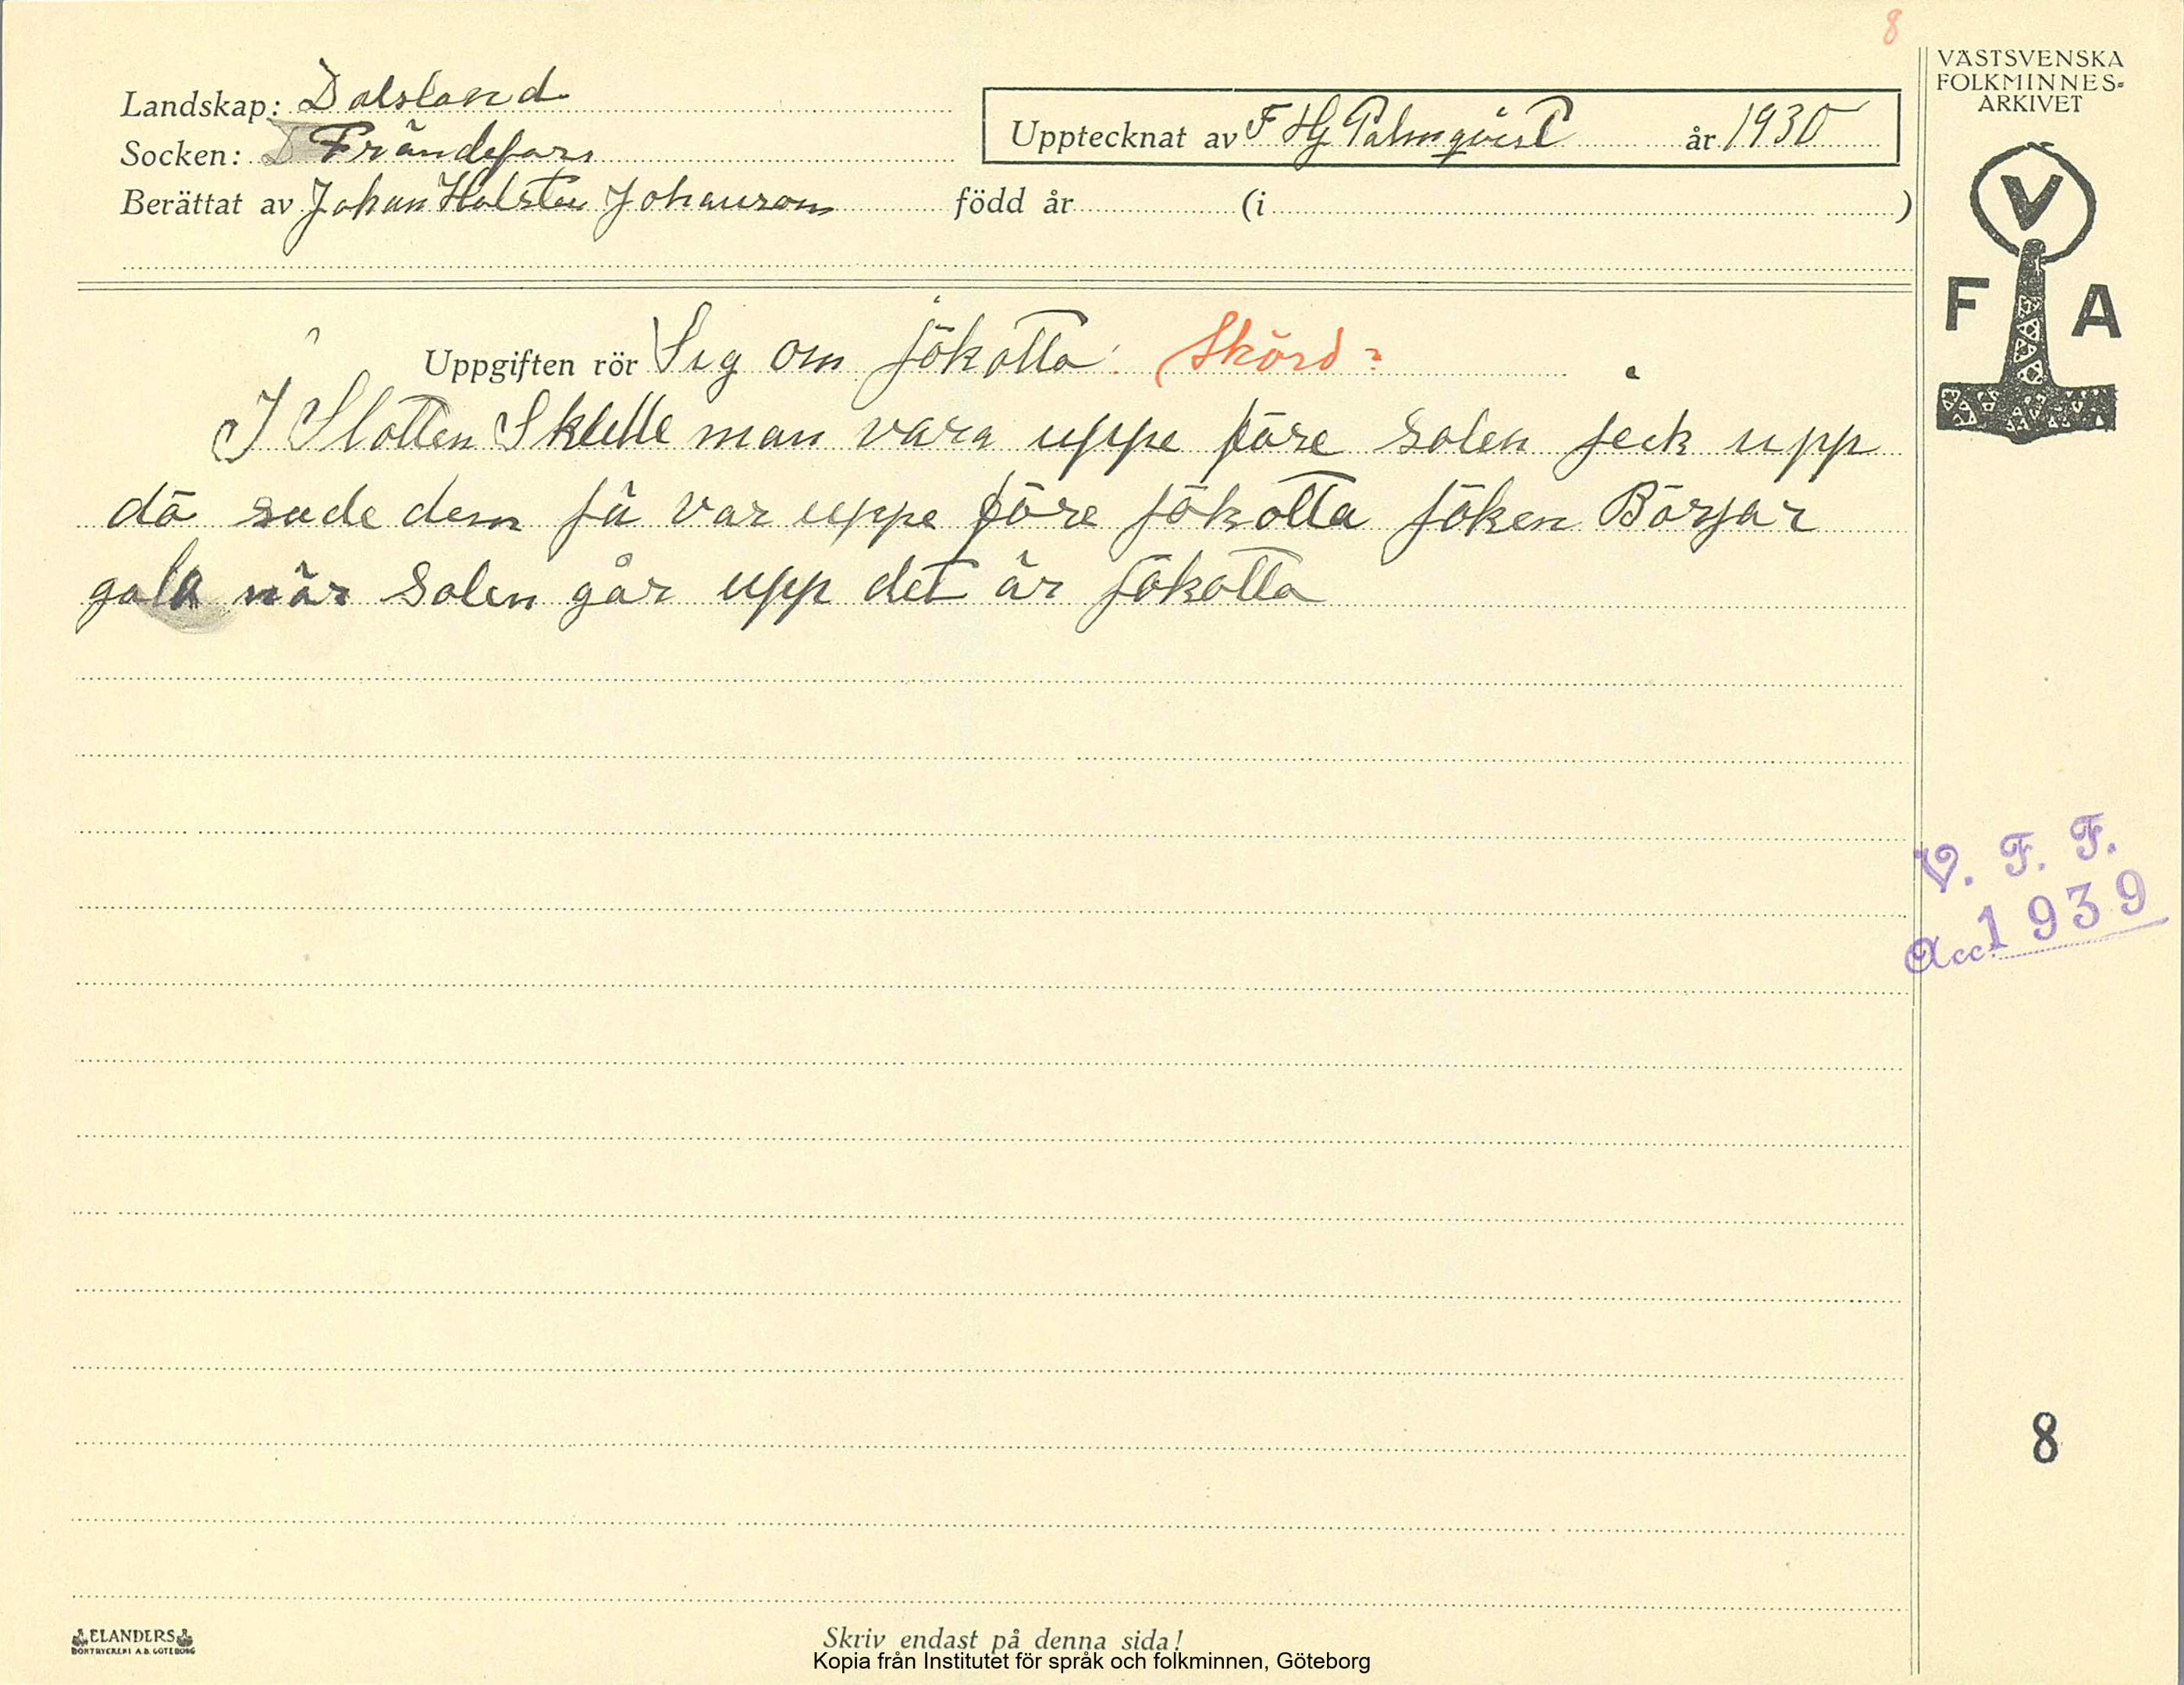 8
VÄSTSVENSKA
FOLKMINNES-
ARKIVET
V
F A
Landskap: Dalsland
Socken: Frändefors
Berättat av Johan Halsten Johanson född år (i )
Upptecknat av F Hj Palmqvist år 1930
Uppgiften rör Sig om jökotta. Skörd?
I Slotten Skulle man vara uppe före solen jeck upp
då sade dem jä var uppe före jökotta jöken Börjar
gala när Solen går upp det är jökotta
V. F. F.
Acc. 1939
8
ELANDERS
BOKTRYCKERI A.B. GÖTEBORG
Skriv endast på denna sida!
Kopia från Institutet för språk och folkminnen, Göteborg